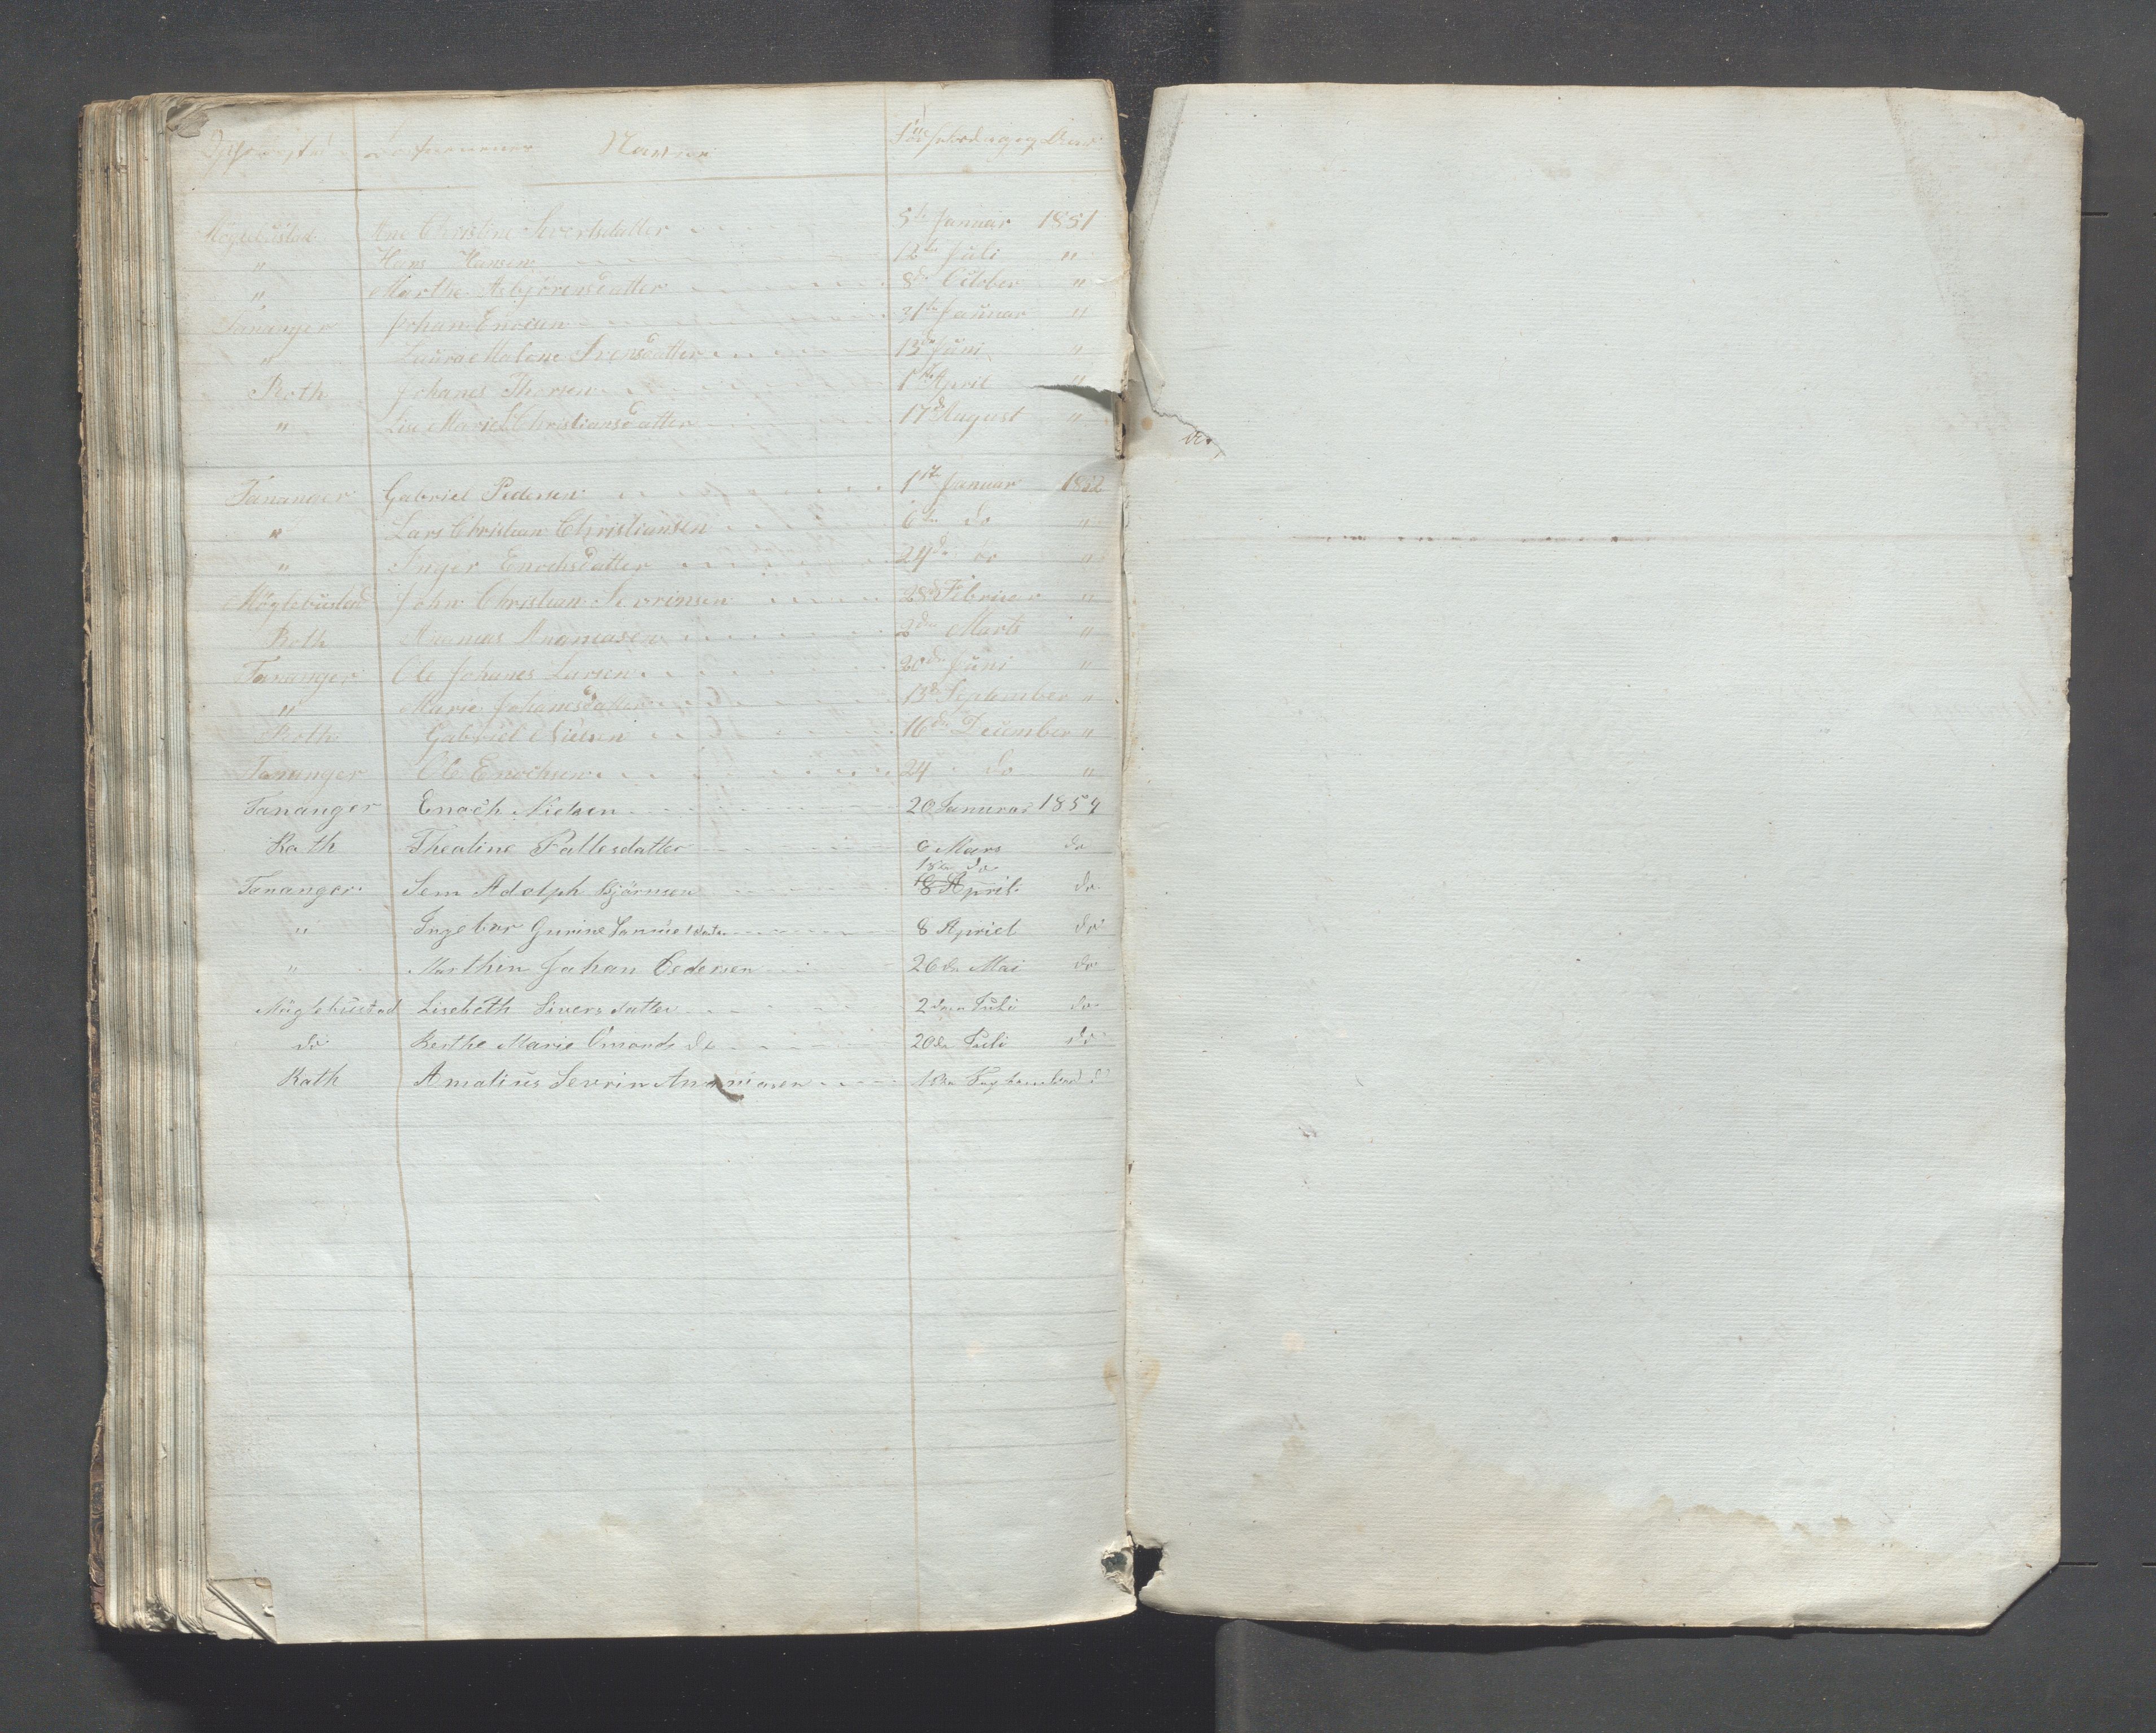 Navne
Møglebustad Ane Christine Sivertsdatter 5te Januar 1851
" Hans Hansen 12te Juli "
" Marthe Asbjörensdatter 8de October "
Tananger Johan Enocsen 31te Januar "
" Laura Malene Svensdatter 13de Juni "
Roth Johanes Thorsen 1ste April "
" Lise Marie Christiansdatter 17de August "
Tananger Gabriel Pedersen 1ste Januar 1852
" Lars Christian Christiansen 6te do "
" Inger Enochsdatter 24de do "
Møglebustad John Christian Sevrinsen 28de Februar "
Roth Ananias Ananiasen 2den Marts "
Tananger Ole Johanes Larsen 20de Juni "
" Marie Johanesdatter 13de September "
Roth Gabriel Nielsen 16de December "
Tananger Ole Enochsen 24 do "
Tananger Enoch Nielsen 20 Januar 1854
Rath Thealine Pallesdatter 6 Mars do
18de do
Tananger Sem Adolph Bjørnsen 8 April do
" Ingebor Gurine Samuelsdatter 8 Apriel do
" Marthin Johan Pedersen 26de Mai do
Møglebustad Lisebeth Siversdatter 2den Juli do
do Berthe Marie Omunds d. 20de Juli do
Rath Amalius Sevrin Ananiasen 18de do